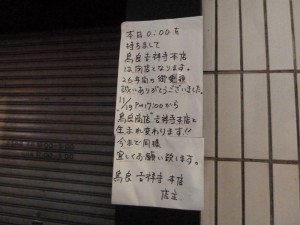 本日0:00を
持ちまして
馬鹿吉祥寺本店
は閉店となります。
26年間の御愛顧
誠にありがとうございました。
11/19 PM17:00から
吉祥寺本店と
生まれ変わります!!
今まで同様
宜しくお願い致します。
吉祥寺 本店
店主